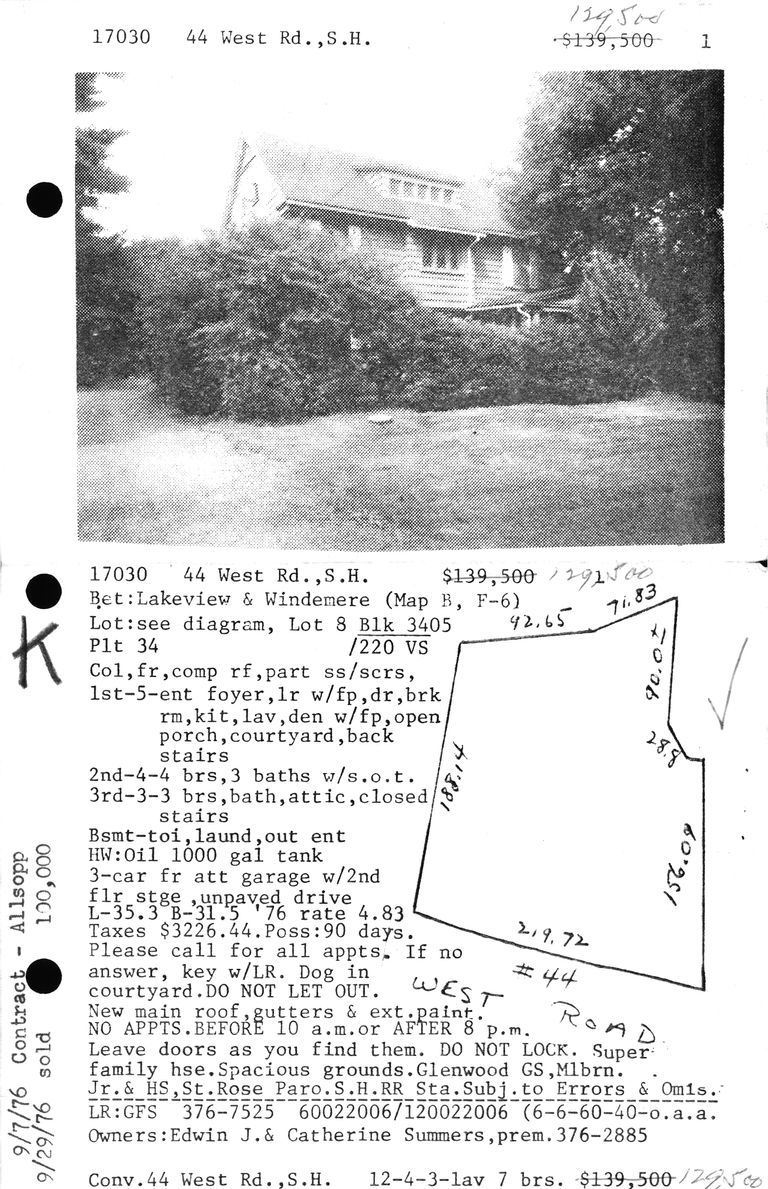 129,500
17030 44 West Rd.,S.H. $139,500 1
17030 44 West Rd.,S.H. $139,500 129,500
Bet:Lakeview & Windemere (Map B, F-6)
Lot:see diagram, Lot 8 Blk 3405
Plt 34 /220 VS
Col,fr,comp rf,part ss/scrs,
1st-5-ent foyer,lr w/fp,dr,brk
rm,kit,lav,den w/fp,open
porch,courtyard,back
stairs
2nd-4-4 brs,3 baths w/s.o.t.
3rd-3-3 brs,bath,attic,closed
stairs
Bsmt-toi,laund,out ent
HW:Oil 1000 gal tank
3-car fr att garage w/2nd
flr stge ,unpaved drive
L-35.3 B-31.5 '76 rate 4.83
Taxes $3226.44.Poss:90 days.
Please call for all appts. If no
answer, key w/LR. Dog in
courtyard.DO NOT LET OUT.
New main roof,gutters & ext.paint.
NO APPTS.BEFORE 10 a.m.or AFTER 8 p.m.
Leave doors as you find them. DO NOT LOCK. Super
family hse.Spacious grounds.Glenwood GS,Mlbrn.
Jr.& HS,St.Rose Paro.S.H.RR Sta.Subj.to Errors & Omis.
LR:GFS 376-7525 60022006/120022006 (6-6-60-40-o.a.a.
Owners:Edwin J.& Catherine Summers,prem.376-2885
Conv.44 West Rd.,S.H. 12-4-3-lav 7 brs. $139,500 129,500
92.65
71.83
90.0±
28.8
188.14
156.09
219.72
# 44
WEST ROAD
K
9/7/76 Contract - Allsopp
9/29/76 sold 100,000